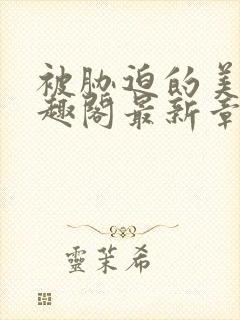 被胁迫的美
趣阁最新章
靈茉希